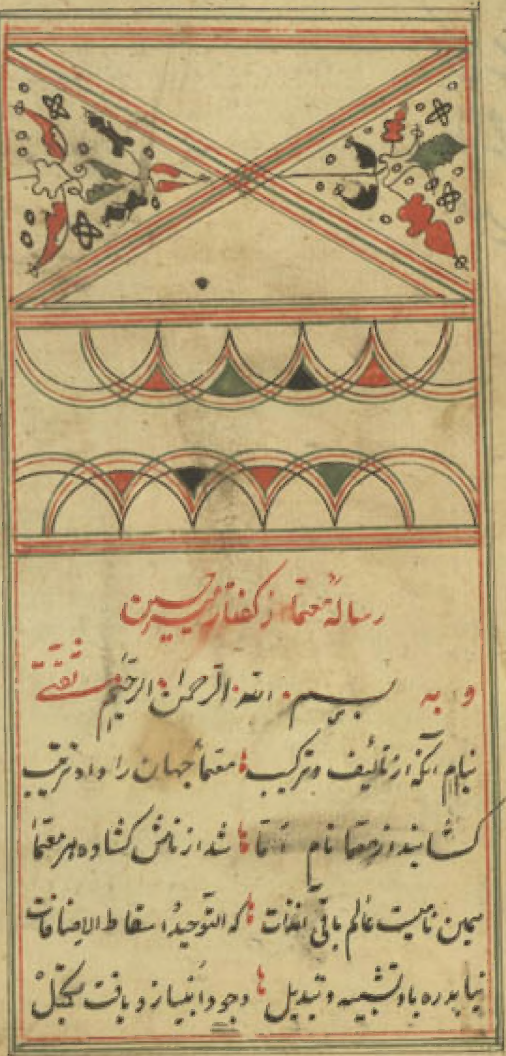 رسالهٔ معما از گفتار میر حسین
و به بسم الله الرحمن الرحیم ثقتی
بنام آنکه از تألیف و ترکیب معمای جهان را داد ترتیب
کشاید از معما نام ما شد از نامش کشاده هر معما
همین نامیست عالم باقی ذات که التوحید اسقاط الاضافات
نیابد ره باو تشبیه و تبدیل وجود انبیا زو یافت تکمیل